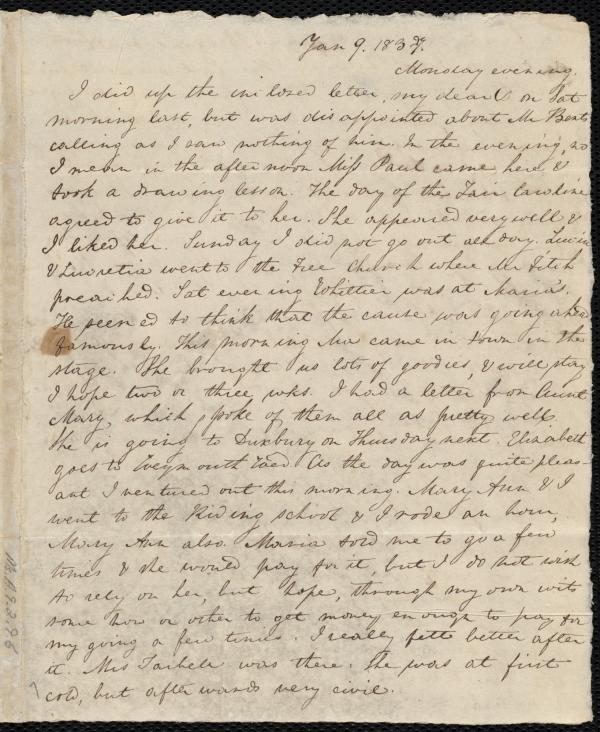 Jan 9. 1837.
Monday evening.
I did up the inclosed letter, my dear C on Sat
morning last, but was disappointed about Mr Bent's
calling as I saw nothing of him. In the evening, no
I mean in the afternoon Miss Paul came here &
took a drawing lesson. The day of the Fair Caroline
agreed to give it to her. She appeared very well &
I liked her. Sunday I did not go out all day. Lucia
& Lucretia went to the Free Church where Mr Fitch
preached. Sat evening Whittier was at Maria's.
He seemed to think that the cause was going ahead
famously. This morning Ma came in town in the
stage. She brought us lots of goodies, & will stay
I hope two or three wks. I had a letter from Aunt
Mary which spoke of them all as pretty well.
She is going to Duxbury on Thursday next. Elizabeth
goes to Weymouth Wed. As the day was quite pleas-
ant I ventured out this morning. Mary Ann & I
went to the Riding school & I rode an hour,
Mary Ann also. Maria told me to go a few
times & she would pay for it, but I do not wish
to rely on her, but hope, through my own wits
some how or other to get money enough to pay for
my going a few times. I really felt better after
it. Mrs Tarbell was there. She was at first
cold, but afterwards very civil.